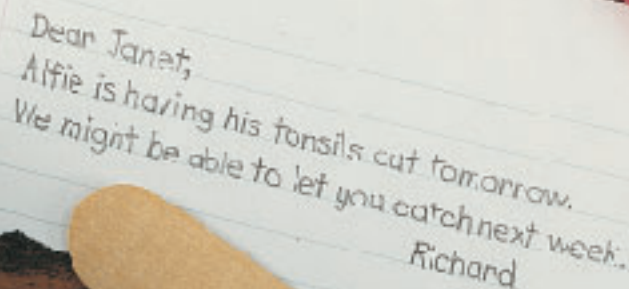 Dear Janet,
Alfie is having his tonsils cut tomorrow.
We might be able to let you catch next week.
Richard